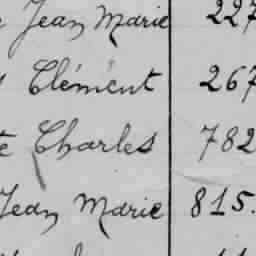 Jean Marie 227
Clément 267
Charles 782
Jean Marie 815.